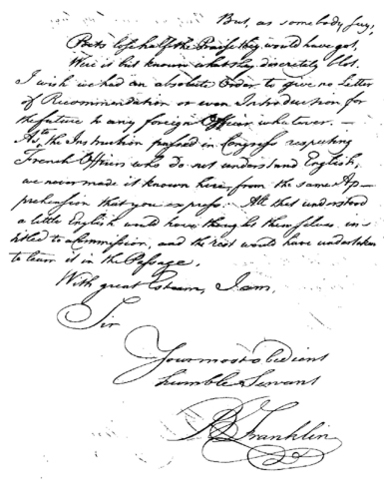 But, as somebody says,
Poets lose half the Praise they would have got,
Were it but known what they discretely blot.
I wish we had an absolute Order to give no Letter
of Recommendation or even Introduction for
the future to any foreign Officer whatever. —
As to the Instruction passed in Congress respecting
French Officers who do not understand English,
we never made it known here, from the same Ap-
prehension that you express. All that understood
a little English would have thought themselves in-
titled to a Commission, and the rest would have undertaken
to learn it in the Passage.
With great Esteem, I am,
Sir
Your most obedient
humble Servant
B Franklin